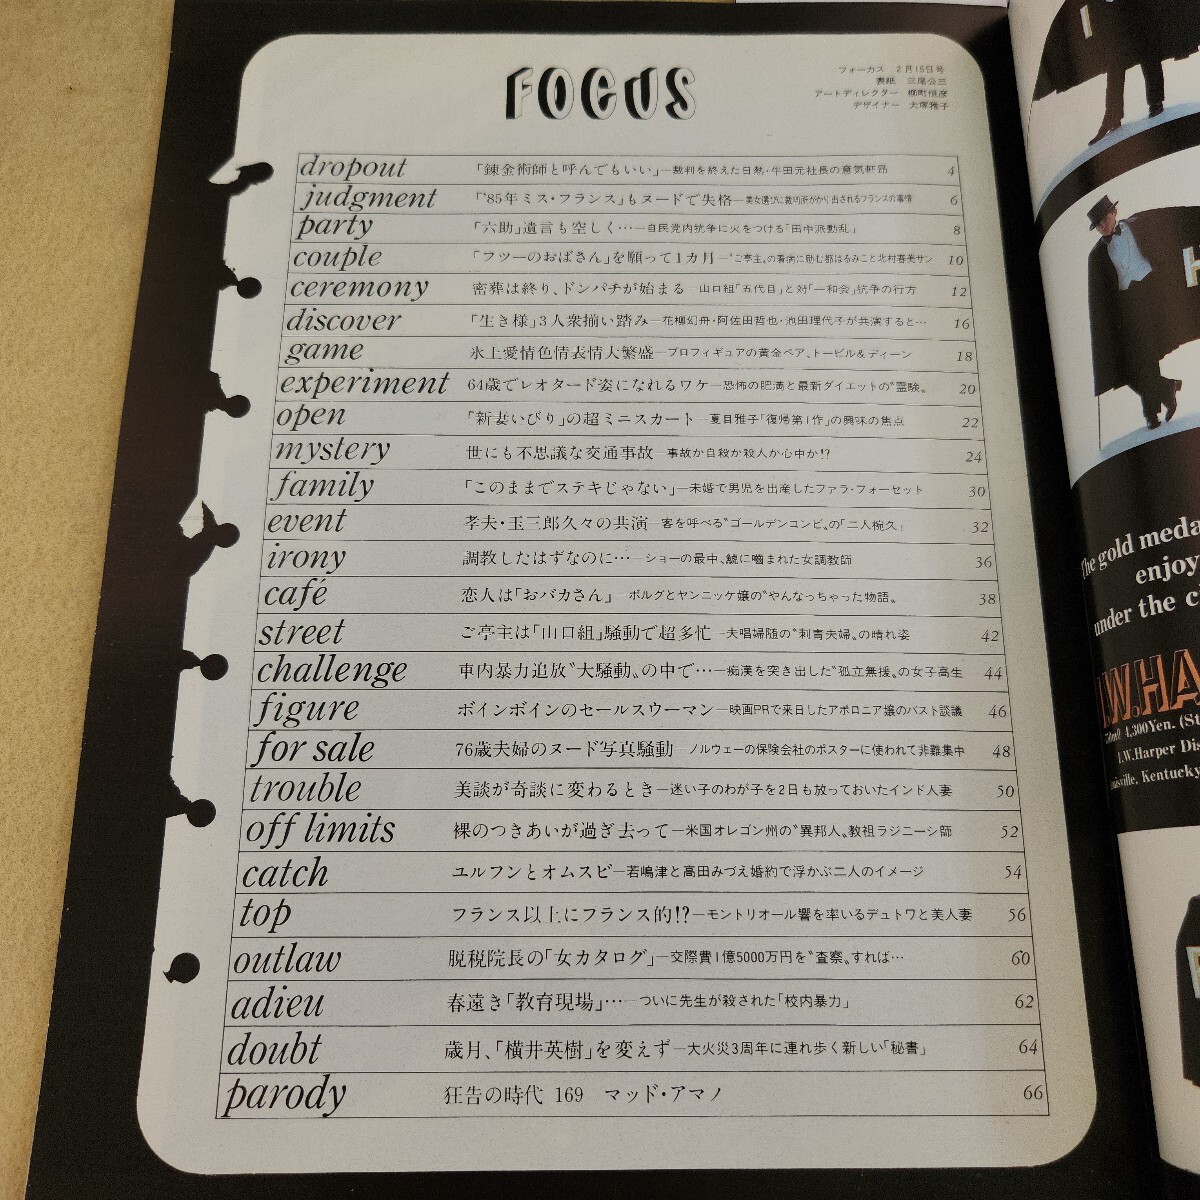 FOCUS
フォーカス 2月15日号
表紙 三尾公三
アートディレクター 棚町恒彦
デザイナー 大塚雅子
dropout 「錬金術師と呼んでもいい」—裁判を終えた日熱・牛田元社長の意気軒昂 4
judgment 「'85年ミス・フランス」もヌードで失格—美女選びに裁判所がかり出されるフランスの事情 6
party 「六助」遺言も空しく…—自民党内抗争に火をつける「田中派動乱」 8
couple 「フツーのおばさん」を願って1カ月—〝ご亭主〟の看病に励む都はるみこと北村春美サン 10
ceremony 密葬は終り、ドンパチが始まる—山口組「五代目」と対「一和会」抗争の行方 12
discover 「生き様」3人衆揃い踏み—花柳幻舟・阿佐田哲也・池田理代子が共演すると… 16
game 氷上愛情色情表情大繁盛—プロフィギュアの黄金ペア、トービル&ディーン 18
experiment 64歳でレオタード姿になれるワケ—恐怖の肥満と最新ダイエットの〝霊験〟 20
open 「新妻いびり」の超ミニスカート—夏目雅子「復帰第1作」の興味の焦点 22
mystery 世にも不思議な交通事故—事故か自殺か殺人か心中か!? 24
family 「このままでステキじゃない」—未婚で男児を出産したファラ・フォーセット 30
event 孝夫・玉三郎久々の共演—客を呼べる〝ゴールデンコンビ〟の「二人椀久」 32
irony 調教したはずなのに…—ショーの最中、鯱に嚙まれた女調教師 36
café 恋人は「おバカさん」—ボルグとヤンニッケ嬢の〝やんなっちゃった物語〟 38
street ご亭主は「山口組」騒動で超多忙—夫唱婦随の〝刺青夫婦〟の晴れ姿 42
challenge 車内暴力追放〝大騒動〟の中で…—痴漢を突き出した〝孤立無援〟の女子高生 44
figure ボインボインのセールスウーマン—映画PRで来日したアポロニア嬢のバスト談議 46
for sale 76歳夫婦のヌード写真騒動—ノルウェーの保険会社のポスターに使われて非難集中 48
trouble 美談が奇談に変わるとき—迷い子のわが子を2日も放っておいたインド人妻 50
off limits 裸のつきあいが過ぎ去って—米国オレゴン州の〝異邦人〟教祖ラジニーシ師 52
catch ユルフンとオムスビ—若嶋津と高田みづえ婚約で浮かぶ二人のイメージ 54
top フランス以上にフランス的!?—モントリオール響を率いるデュトワと美人妻 56
outlaw 脱税院長の「女カタログ」—交際費1億5000万円を〝査察〟すれば… 60
adieu 春遠き「教育現場」…—ついに先生が殺された「校内暴力」 62
doubt 歳月、「横井英樹」を変えず—大火災3周年に連れ歩く新しい「秘書」 64
parody 狂告の時代 169 マッド・アマノ 66
The gold meda
enjoy
under the c
I.W.HA
4,300Yen. (St
I.W.Harper Dis
Louisville, Kentucky